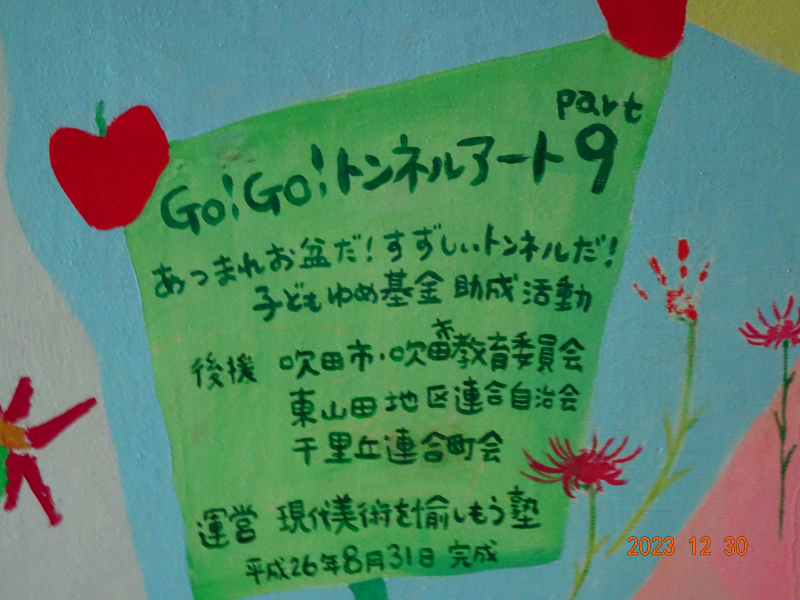 part
Go!Go!トンネルアート9
あつまれお盆だ!すずしいトンネルだ!
子どもゆめ基金 助成活動
後援 吹田市・吹田市教育委員会
東山田地区連合自治会
千里丘連合町会
運営 現代美術を愉しもう塾
平成26年8月31日 完成
2023 12 30